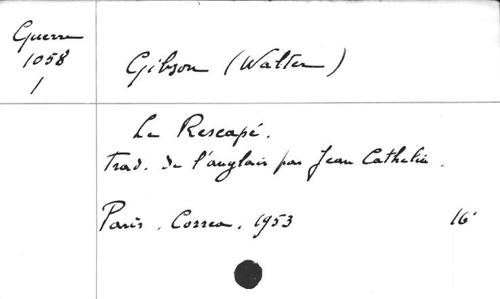 Guerre
1058
1
Gibson (Walter)
Le Rescapé.
Trad. de l'anglais par Jean Cathelin.
Paris. Correa. 1953 16°